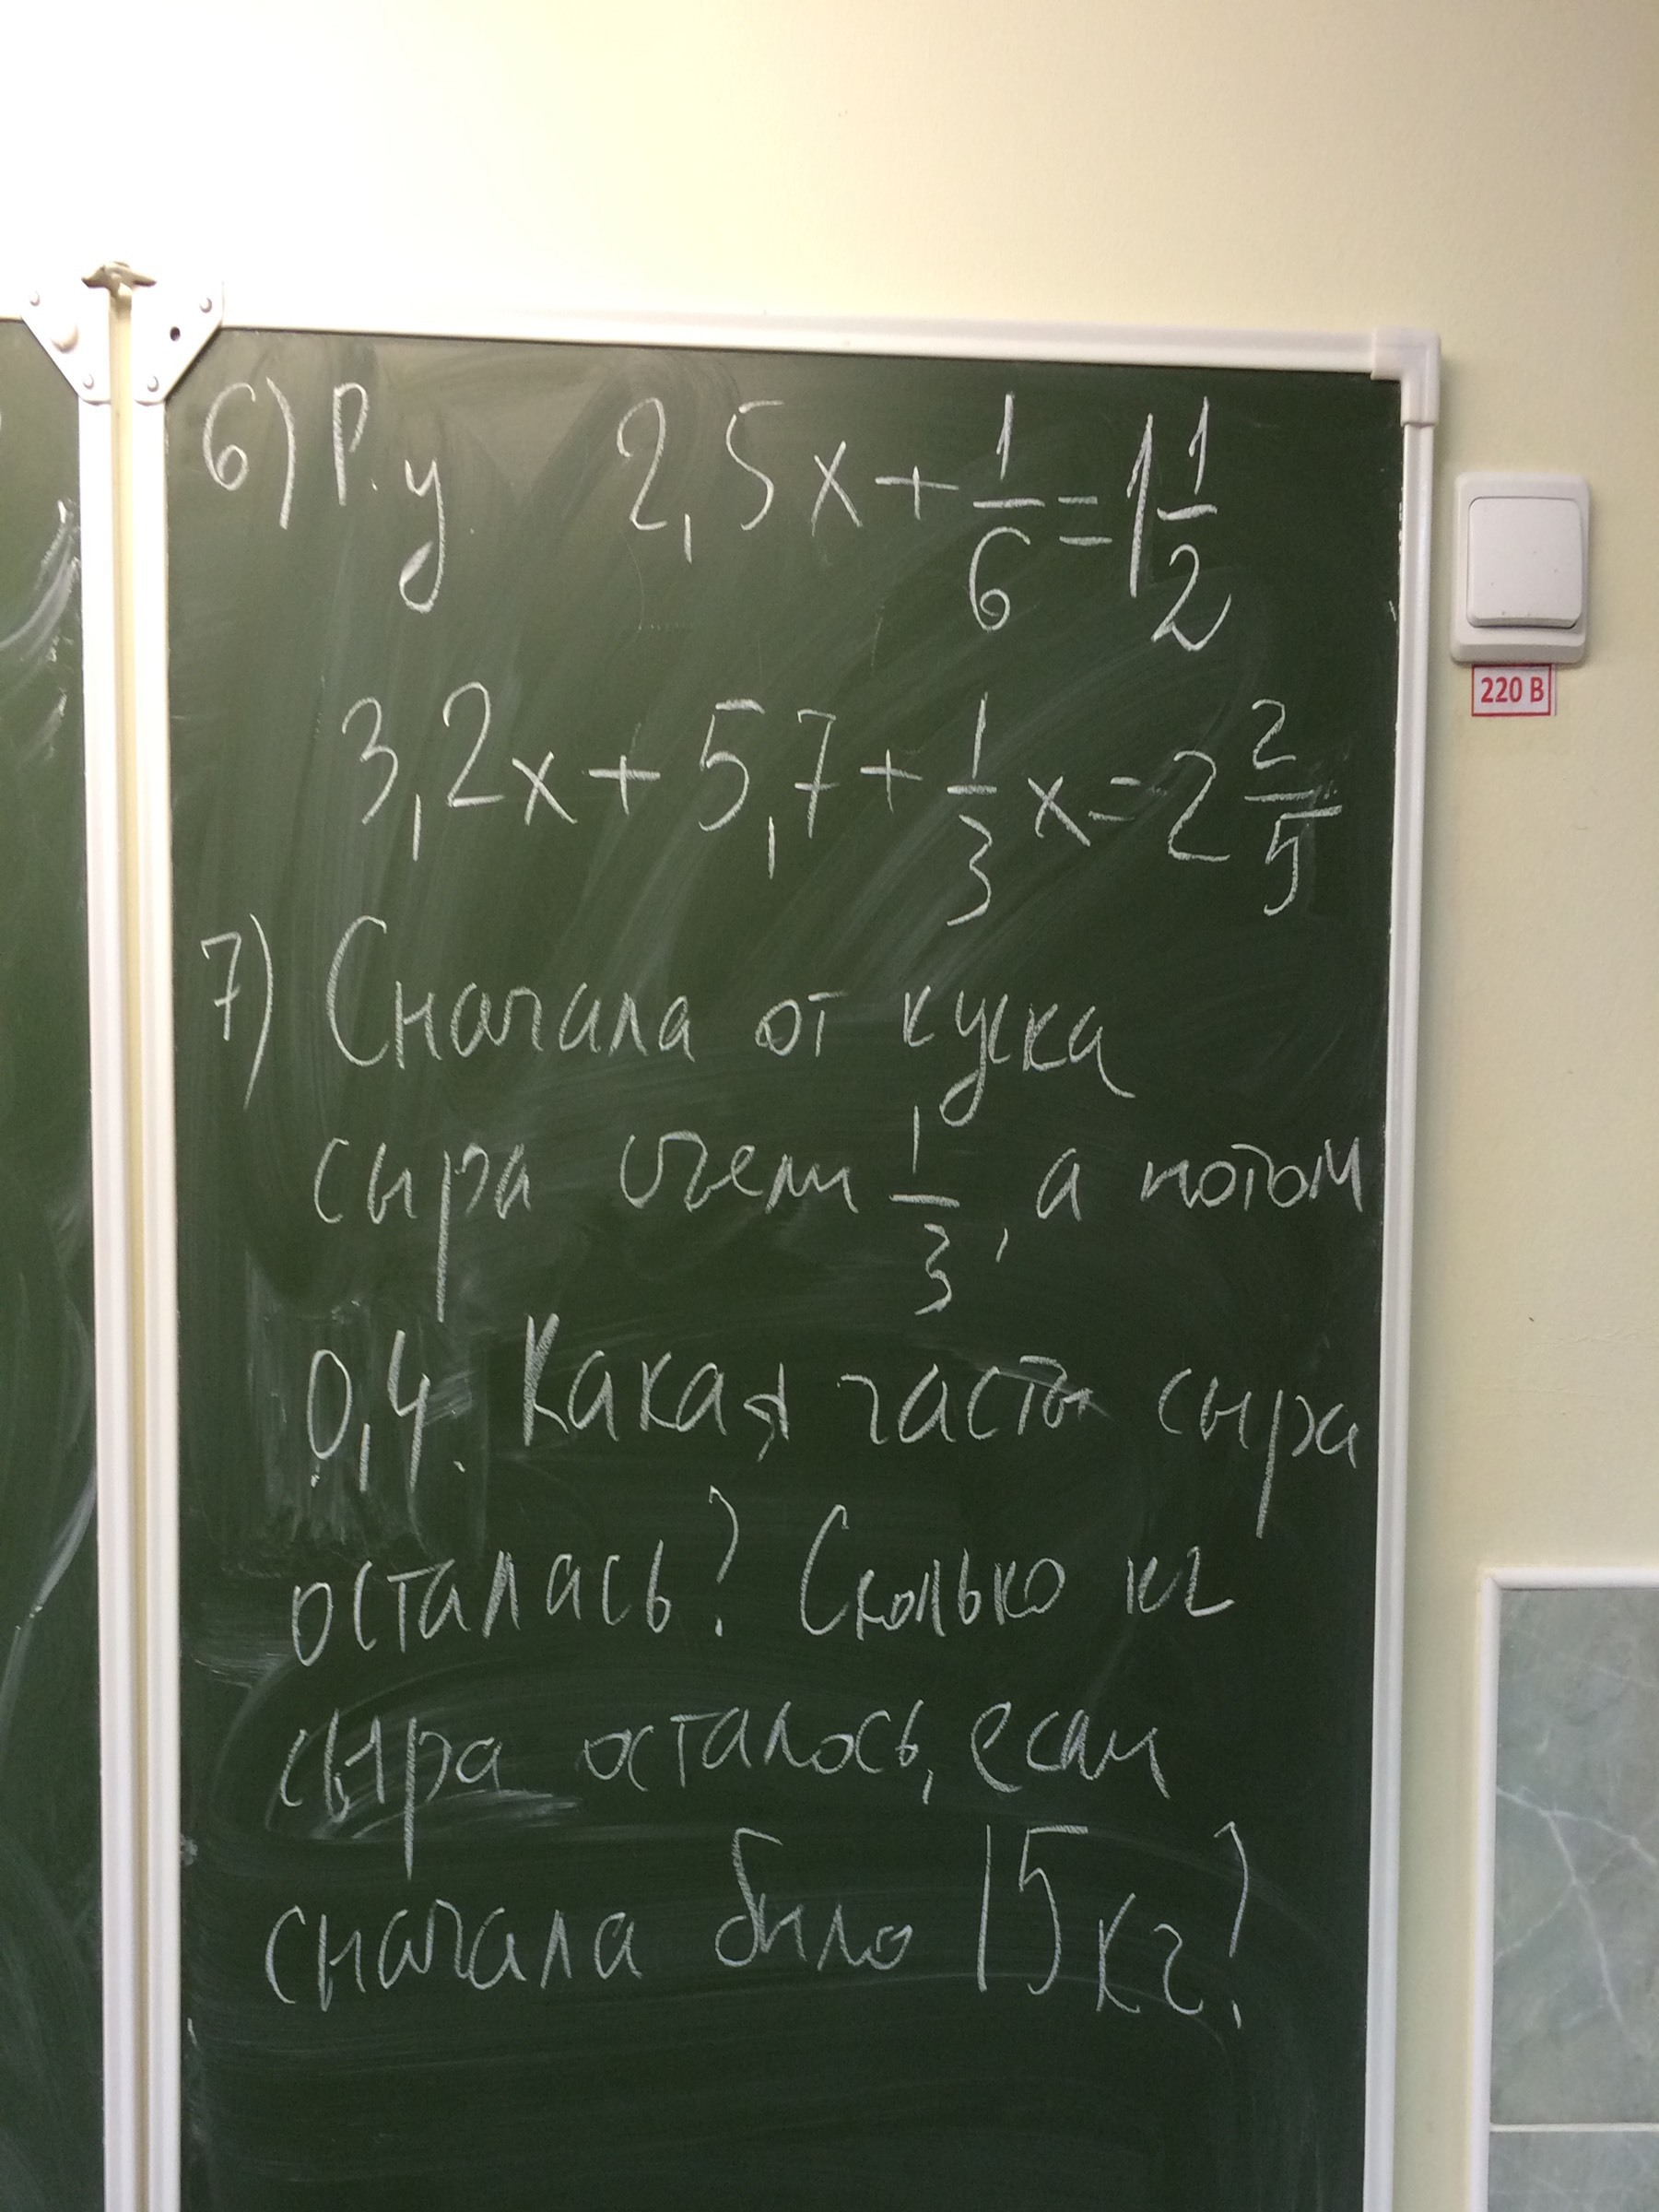 6) Р. у. 2,5x + 1/6 = 1 1/2
3,2x + 5,7 + 1/3 x = 2 2/5
7) Сначала от куска
сыра съели 1/3, а потом
0,4. Какая часть сыра
осталась? Сколько кг
сыра осталось, если
сначала было 15 кг?
220 В